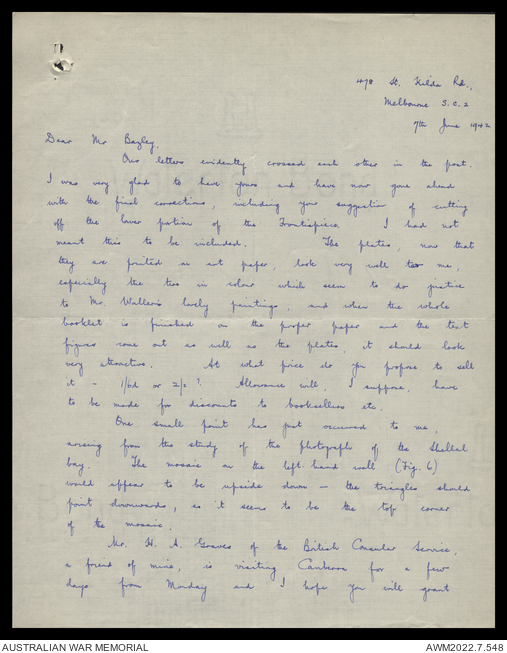 478 St. Kilda Rd.,
Melbourne S.C.2
7th June 1942
Dear Mr Bazley,
Our letters evidently crossed each other in the post.
I was very glad to have yours and have now gone ahead
with the final corrections, including your suggestion of cutting
off the lower portion of the Frontispiece. I had not
meant this to be included. The plates, now that
they are printed on art paper, look very well to me,
especially the two in colour which seem to do justice
to Mr. Waller's lovely paintings, and when the whole
booklet is finished on the proper paper and the text
figures come out as well as the plates, it should look
very attractive. At what price do you propose to sell
it - 1/6d or 2/- ? Allowance will, I suppose, have
to be made for discounts to booksellers etc.
One small point has just occurred to me,
arising from the study of the photograph of the Shellal
bay. The mosaic on the left-hand wall (Fig. 6)
would appear to be upside down - the triangles should
point downwards, as it seems to be the top corner
of the mosaic.
Mr. H. A. Graves of the British Consular Service,
a friend of mine, is visiting Canberra for a few
days from Monday and I hope you will grant
AUSTRALIAN WAR MEMORIAL
AWM2022.7.548